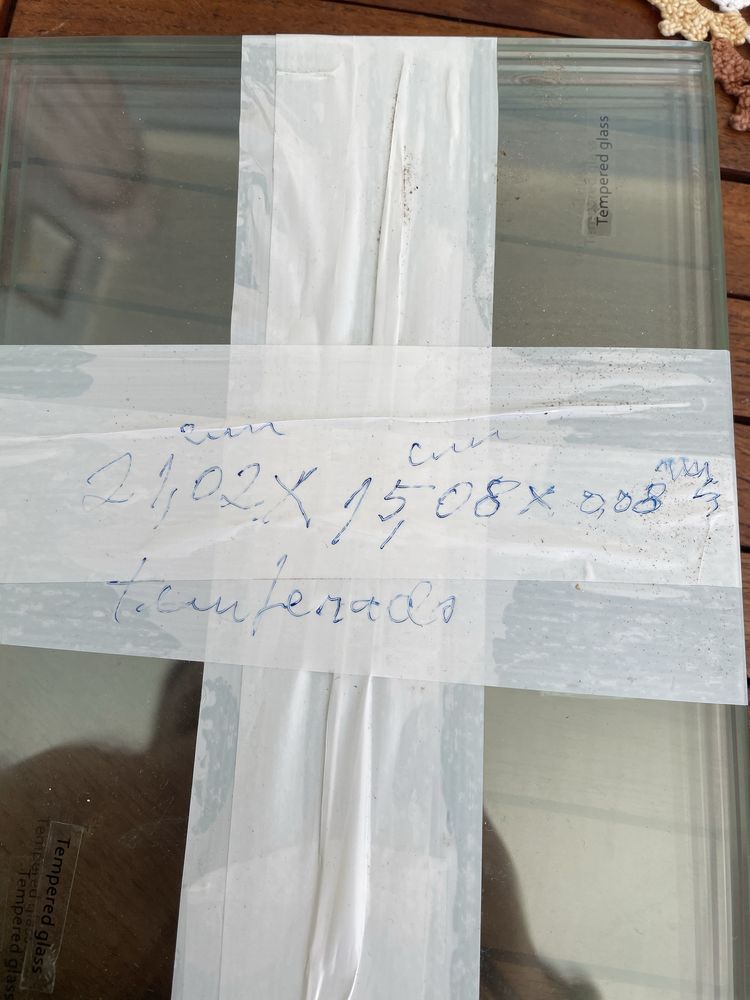 Tempered glass
cm cm mm
21,02 X 15,08 x 0,08
temperado
Tempered glass
Tempered glass
Tempered glass